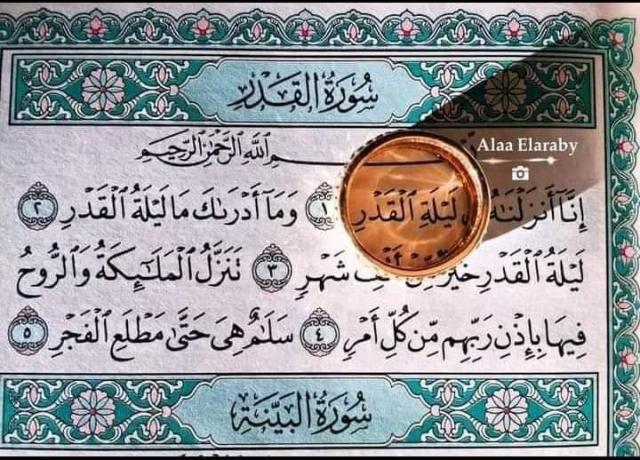 سُورَةُ القَدْرِ
ـسـمِ ٱللَّهِ ٱلرَّحْمَٰنِ ٱلرَّحِيمِ
Alaa Elaraby
إِنَّآ أَنزَلْنَٰهُ لَيْلَةِ ٱلْقَدْرِ ١ وَمَآ أَدْرَىٰكَ مَا لَيْلَةُ ٱلْقَدْرِ ٢
لَيْلَةُ ٱلْقَدْرِ خَيْرٌ مِّنْ أَلْفِ شَهْرٍ ٣ تَنَزَّلُ ٱلْمَلَٰٓئِكَةُ وَٱلرُّوحُ
فِيهَا بِإِذْنِ رَبِّهِم مِّن كُلِّ أَمْرٍ ٤ سَلَٰمٌ هِىَ حَتَّىٰ مَطْلَعِ ٱلْفَجْرِ ٥
سُورَةُ البَيِّنَةِ